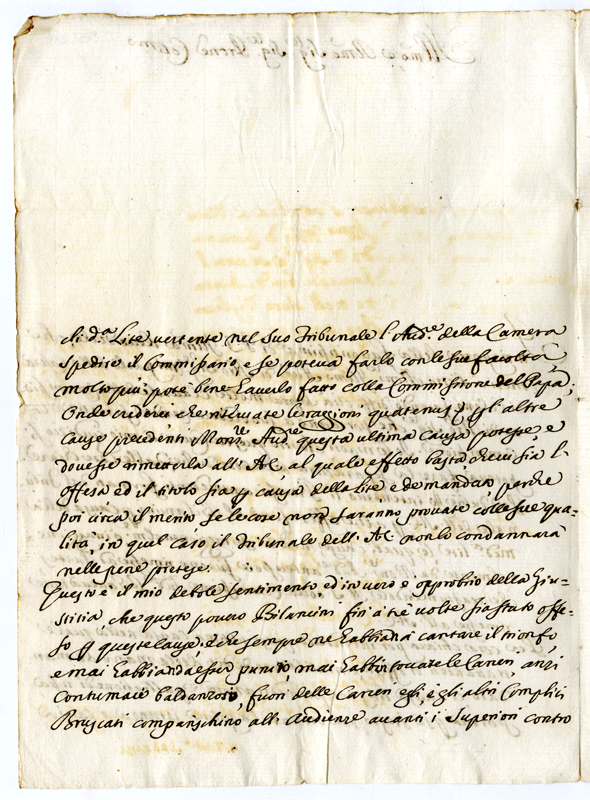 di d.ª Lite vertente nel suo Tribunale l'Aud.re della Camera
spedire il Commissario, e se poteva farlo con le sue facoltà
molto più pote bene haverlo fatto colla Commissione del Papa;
Onde crederei che riservate le raggioni quatenus p gl'altre
cause precedenti Mons.re Aud.re questa ultima causa potesse, e
dovesse rimetterla all'AC al quale effetto basta che vi sia l'
offesa ed il titolo sia p causa della lite e demandato, perche
poi circa il merito se le cose non saranno provate colle sue qua-
lità, in quel caso il Tribunale dell'AC non lo condannarà
nelle pene pretese.
Questo è il mio debole sentimento, ed in vero è opprobrio della Giu-
stitia, che questo povero Bilancini fin'a trè volte sia stato offe-
so p queste cause, e che sempre ne habbiano a cantare il trionfo,
e mai habbiano da esser puniti, mai habbin toccate le Carceri, anzi
contumaci baldanzosi, fuori delle Carceri egli, e gli altri Complici
Bruscati compariscbino all'Audienze avanti i Superiori contro